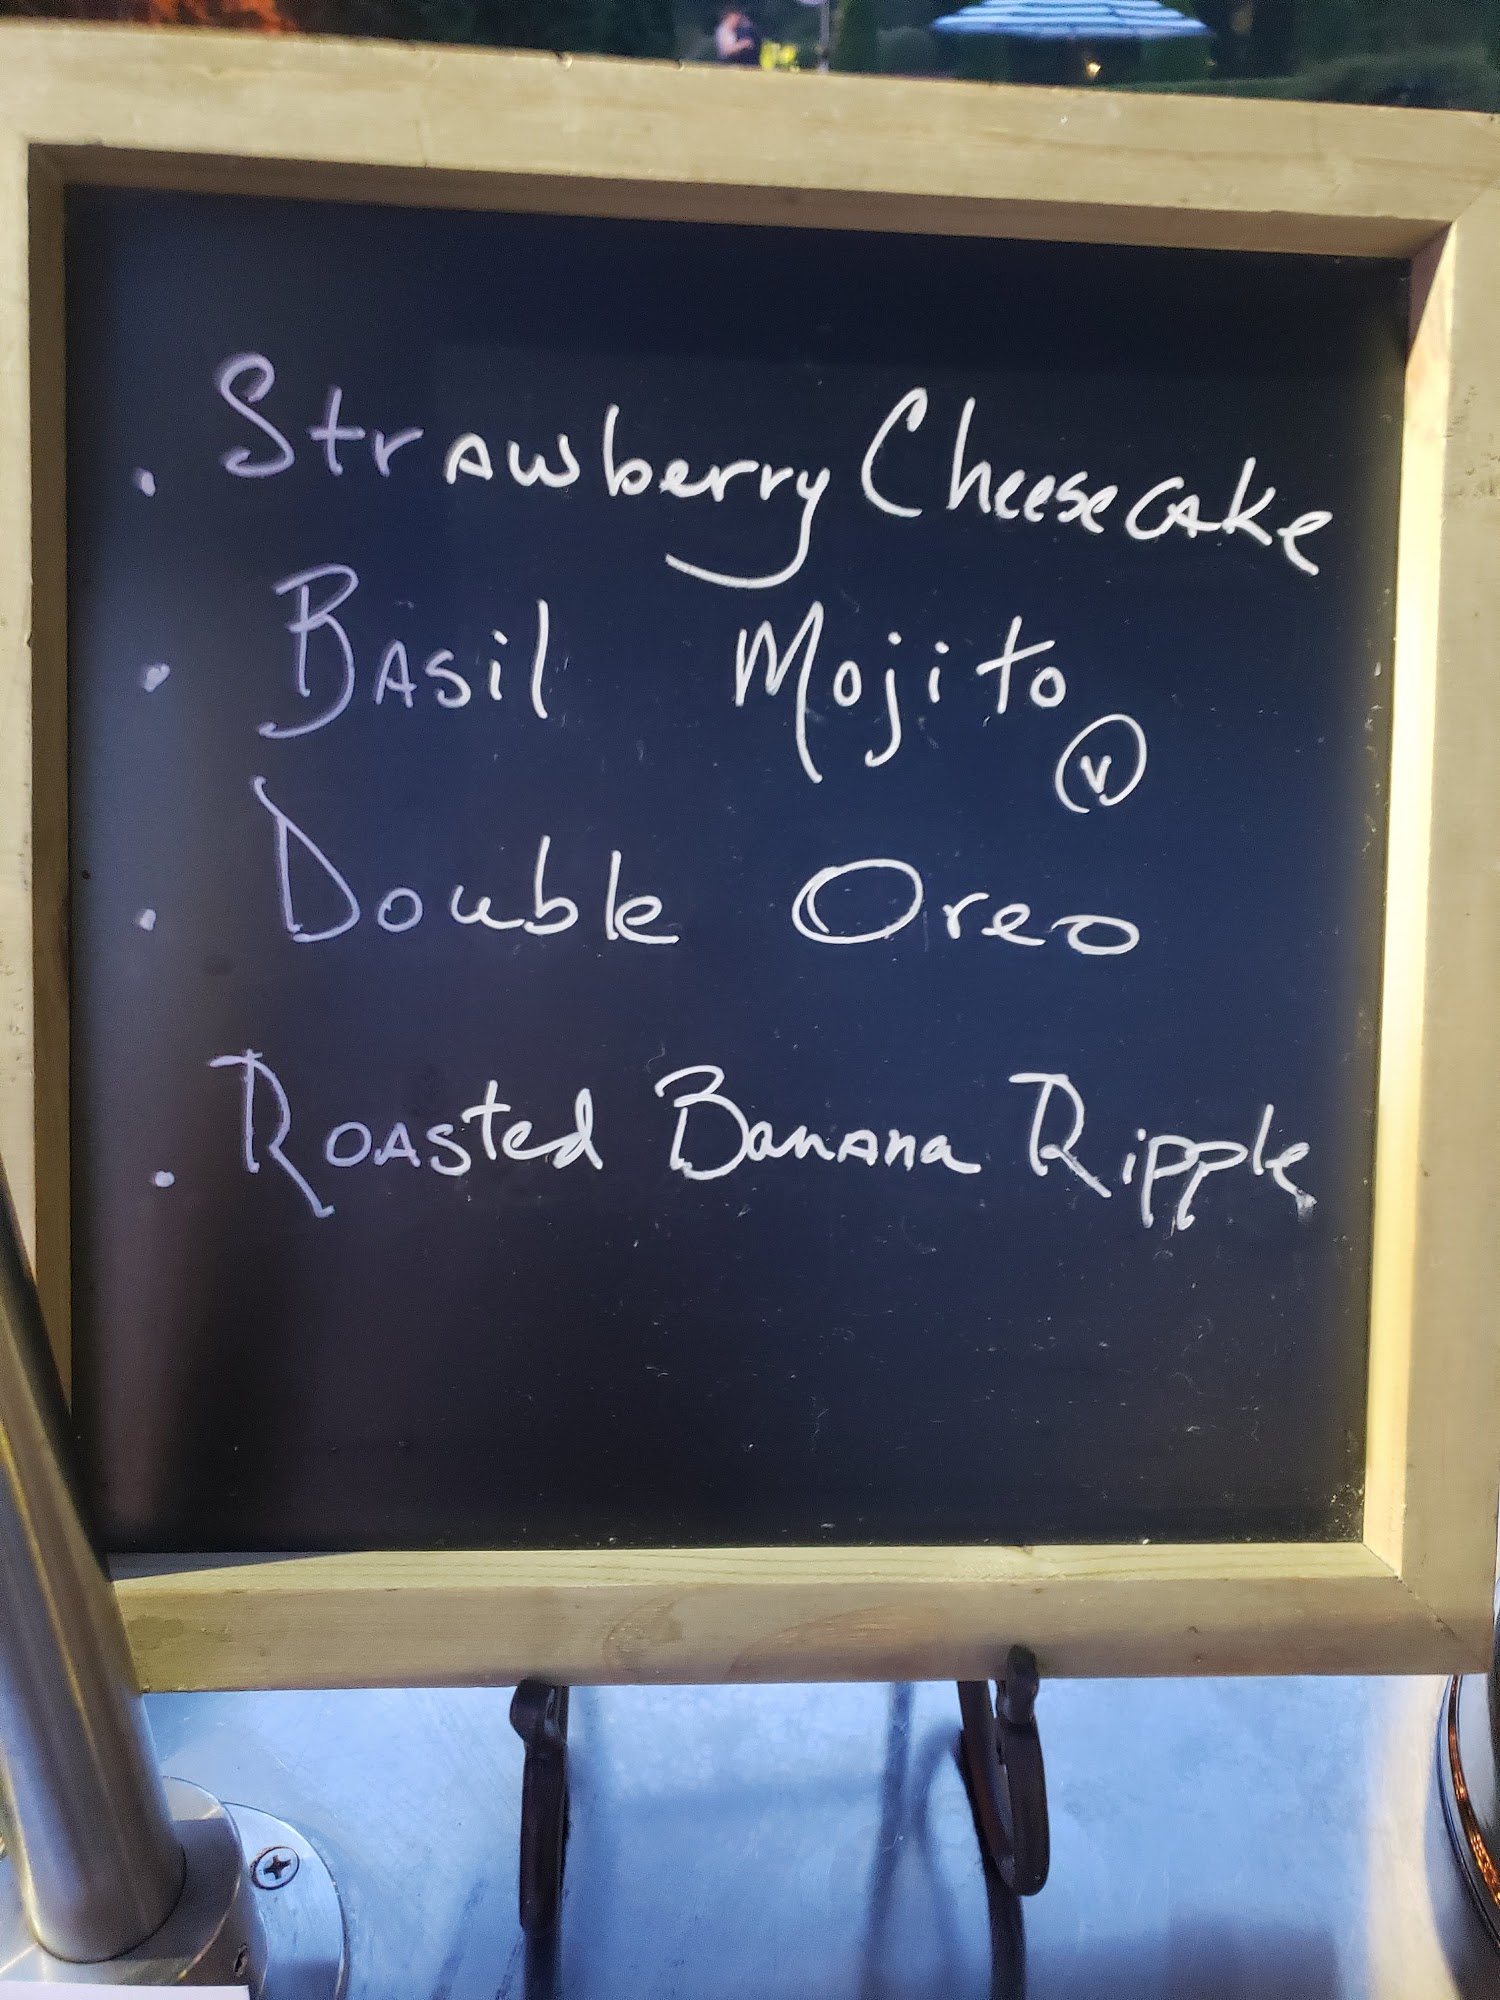 . Strawberry Cheesecake
. Basil Mojito
V
. Double Oreo
. Roasted Banana Ripple